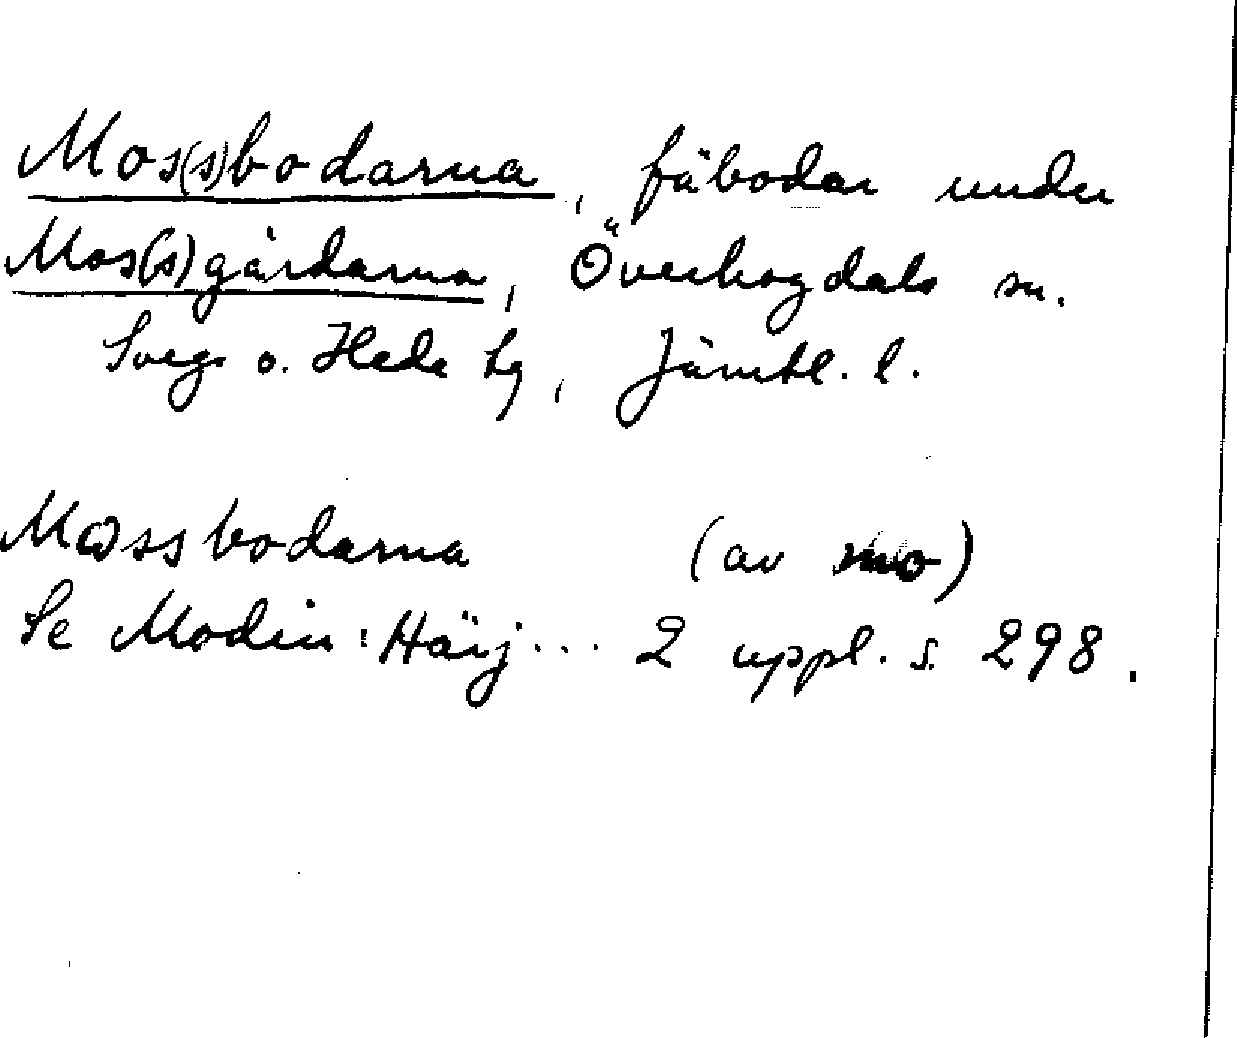 Mos(s)bodarna, fäbodar under
Mos(s)gårdarna, Överhogdals sn.
Svegs o. Hede tg, Jämtl. l.
Mossbodarna (av mo)
Se Modin: Härj... 2 uppl. s. 298.